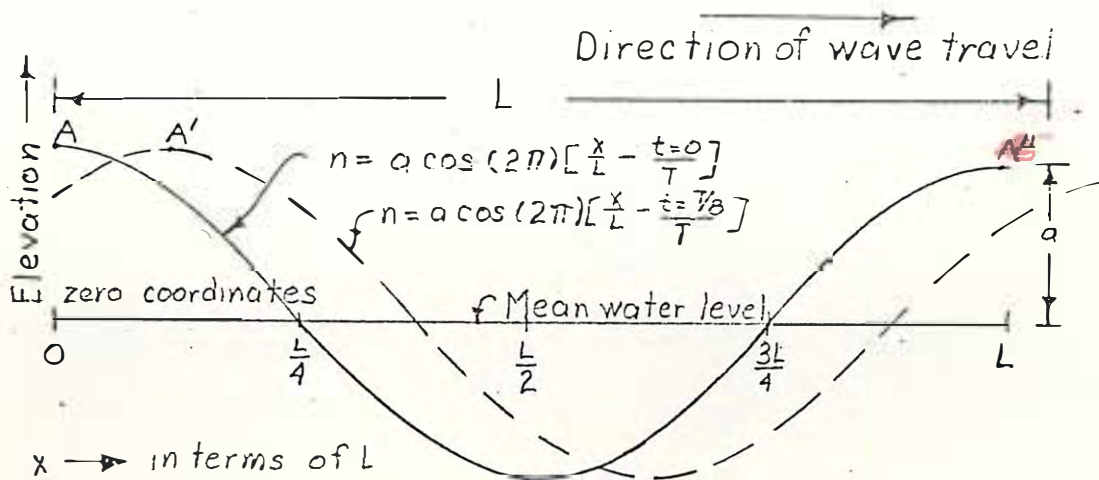 Direction of wave travel
Elevation
L
A
A'
A"
n = a cos (2π) [x/L - t=0/T]
n = a cos (2π) [x/L - t=T/8/T]
a
zero coordinates
Mean water level
0
L/4
L/2
3L/4
L
x → in terms of L